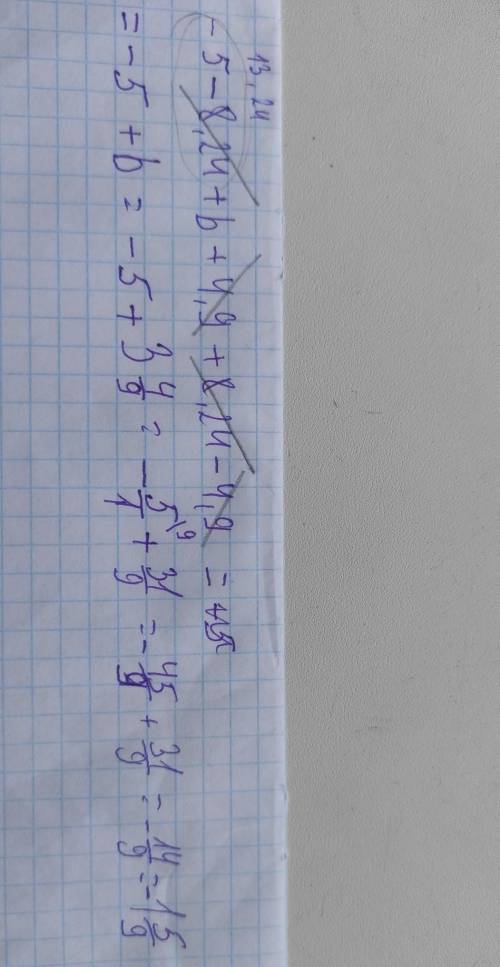 13,24
-5-8,24+b+4,9+8,24-4,9=
=-5+b=-5+3 4/9=-5/1\9+31/9=-45/9+31/9=-14/9=-1 5/9